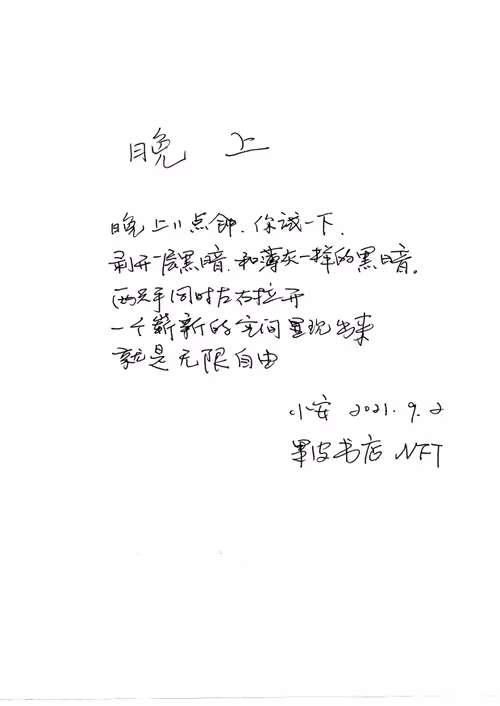 晚上
晚上11点钟.你试一下.
剥开一层黑暗.和薄灰一样的黑暗。
两只手同时左右拉开
一个崭新的空间呈现出来
就是无限自由
小安 2021.9.2
果皮书店 NFT